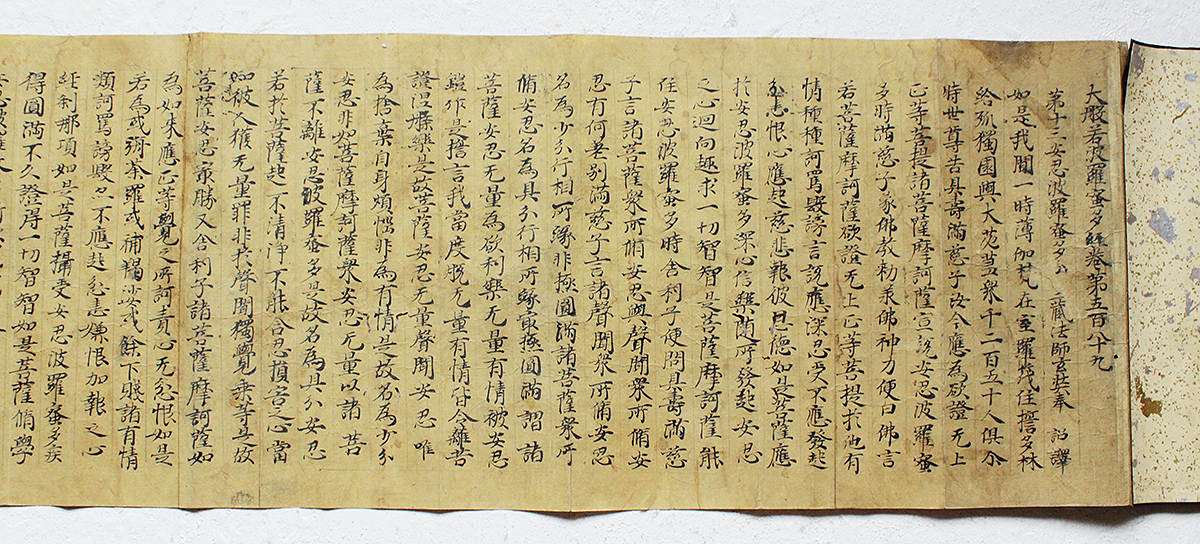 大般若波羅蜜多經卷第五百八十九
第十三安忍波羅蜜多分 三藏法師玄奘奉 詔譯
如是我聞一時薄伽梵在室羅筏住誓多林
給孤獨園與大苾芻衆千二百五十人俱尒
時世尊告具壽滿慈子汝今應為欲證无上
正等菩提諸菩薩摩訶薩宣說安忍波羅蜜
多時滿慈子承佛教勅承佛神力便白佛言
若菩薩摩訶薩欲證无上正等菩提於他有
情種種訶罵毀謗言說應深忍受不應發起
忿恚恨心應起慈悲報彼恩德如是菩薩應
於安忍波羅蜜多深心信樂隨所發起安忍
之心迴向趣求一切智智是菩薩摩訶薩能
住安忍波羅蜜多時舍利子便問具壽滿慈
子言諸菩薩衆所脩安忍與聲聞衆所脩安
忍有何差別滿慈子言諸聲聞衆所脩安忍
名為少分行相所緣非極圓滿諸菩薩衆所
脩安忍名為具分行相所緣寂極圓滿謂諸
菩薩安忍无量為欲利樂无量有情被安忍
鎧作是誓言我當度脫无量有情皆令離苦
證涅槃樂是故菩薩安忍无量聲聞安忍唯
為捨棄自身煩惱非為有情是故名為少分
安忍非如菩薩摩訶薩衆安忍无量以諸菩
薩不離安忍波羅蜜多是故名為具分安忍
若於菩薩起不清淨不能含忍損害之心當
知彼人獲无量罪非於聲聞獨覺乘等是故
菩薩安忍寂勝又舍利子諸菩薩摩訶薩如
為如來應正等覺之所訶責心无忿恨如是
若為或旃荼羅或補羯娑或餘下賤諸有情
類訶罵謗毀亦不應起忿恚嫌恨加報之心
經剎那項如是菩薩攝受安忍波羅蜜多疾
得圓滿不久證得一切智智如是菩薩脩學